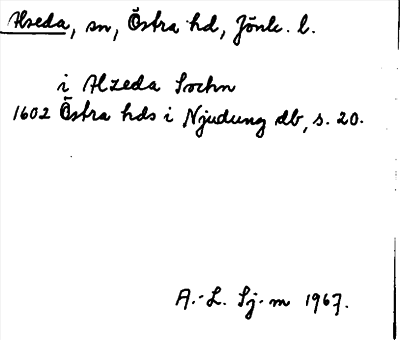 Alseda, sn, Östra hd, Jönk. l.
i Alzeda Sochn
1602 Östra hds i Njudung db, s. 20.
A.-L. Sj-m 1967.